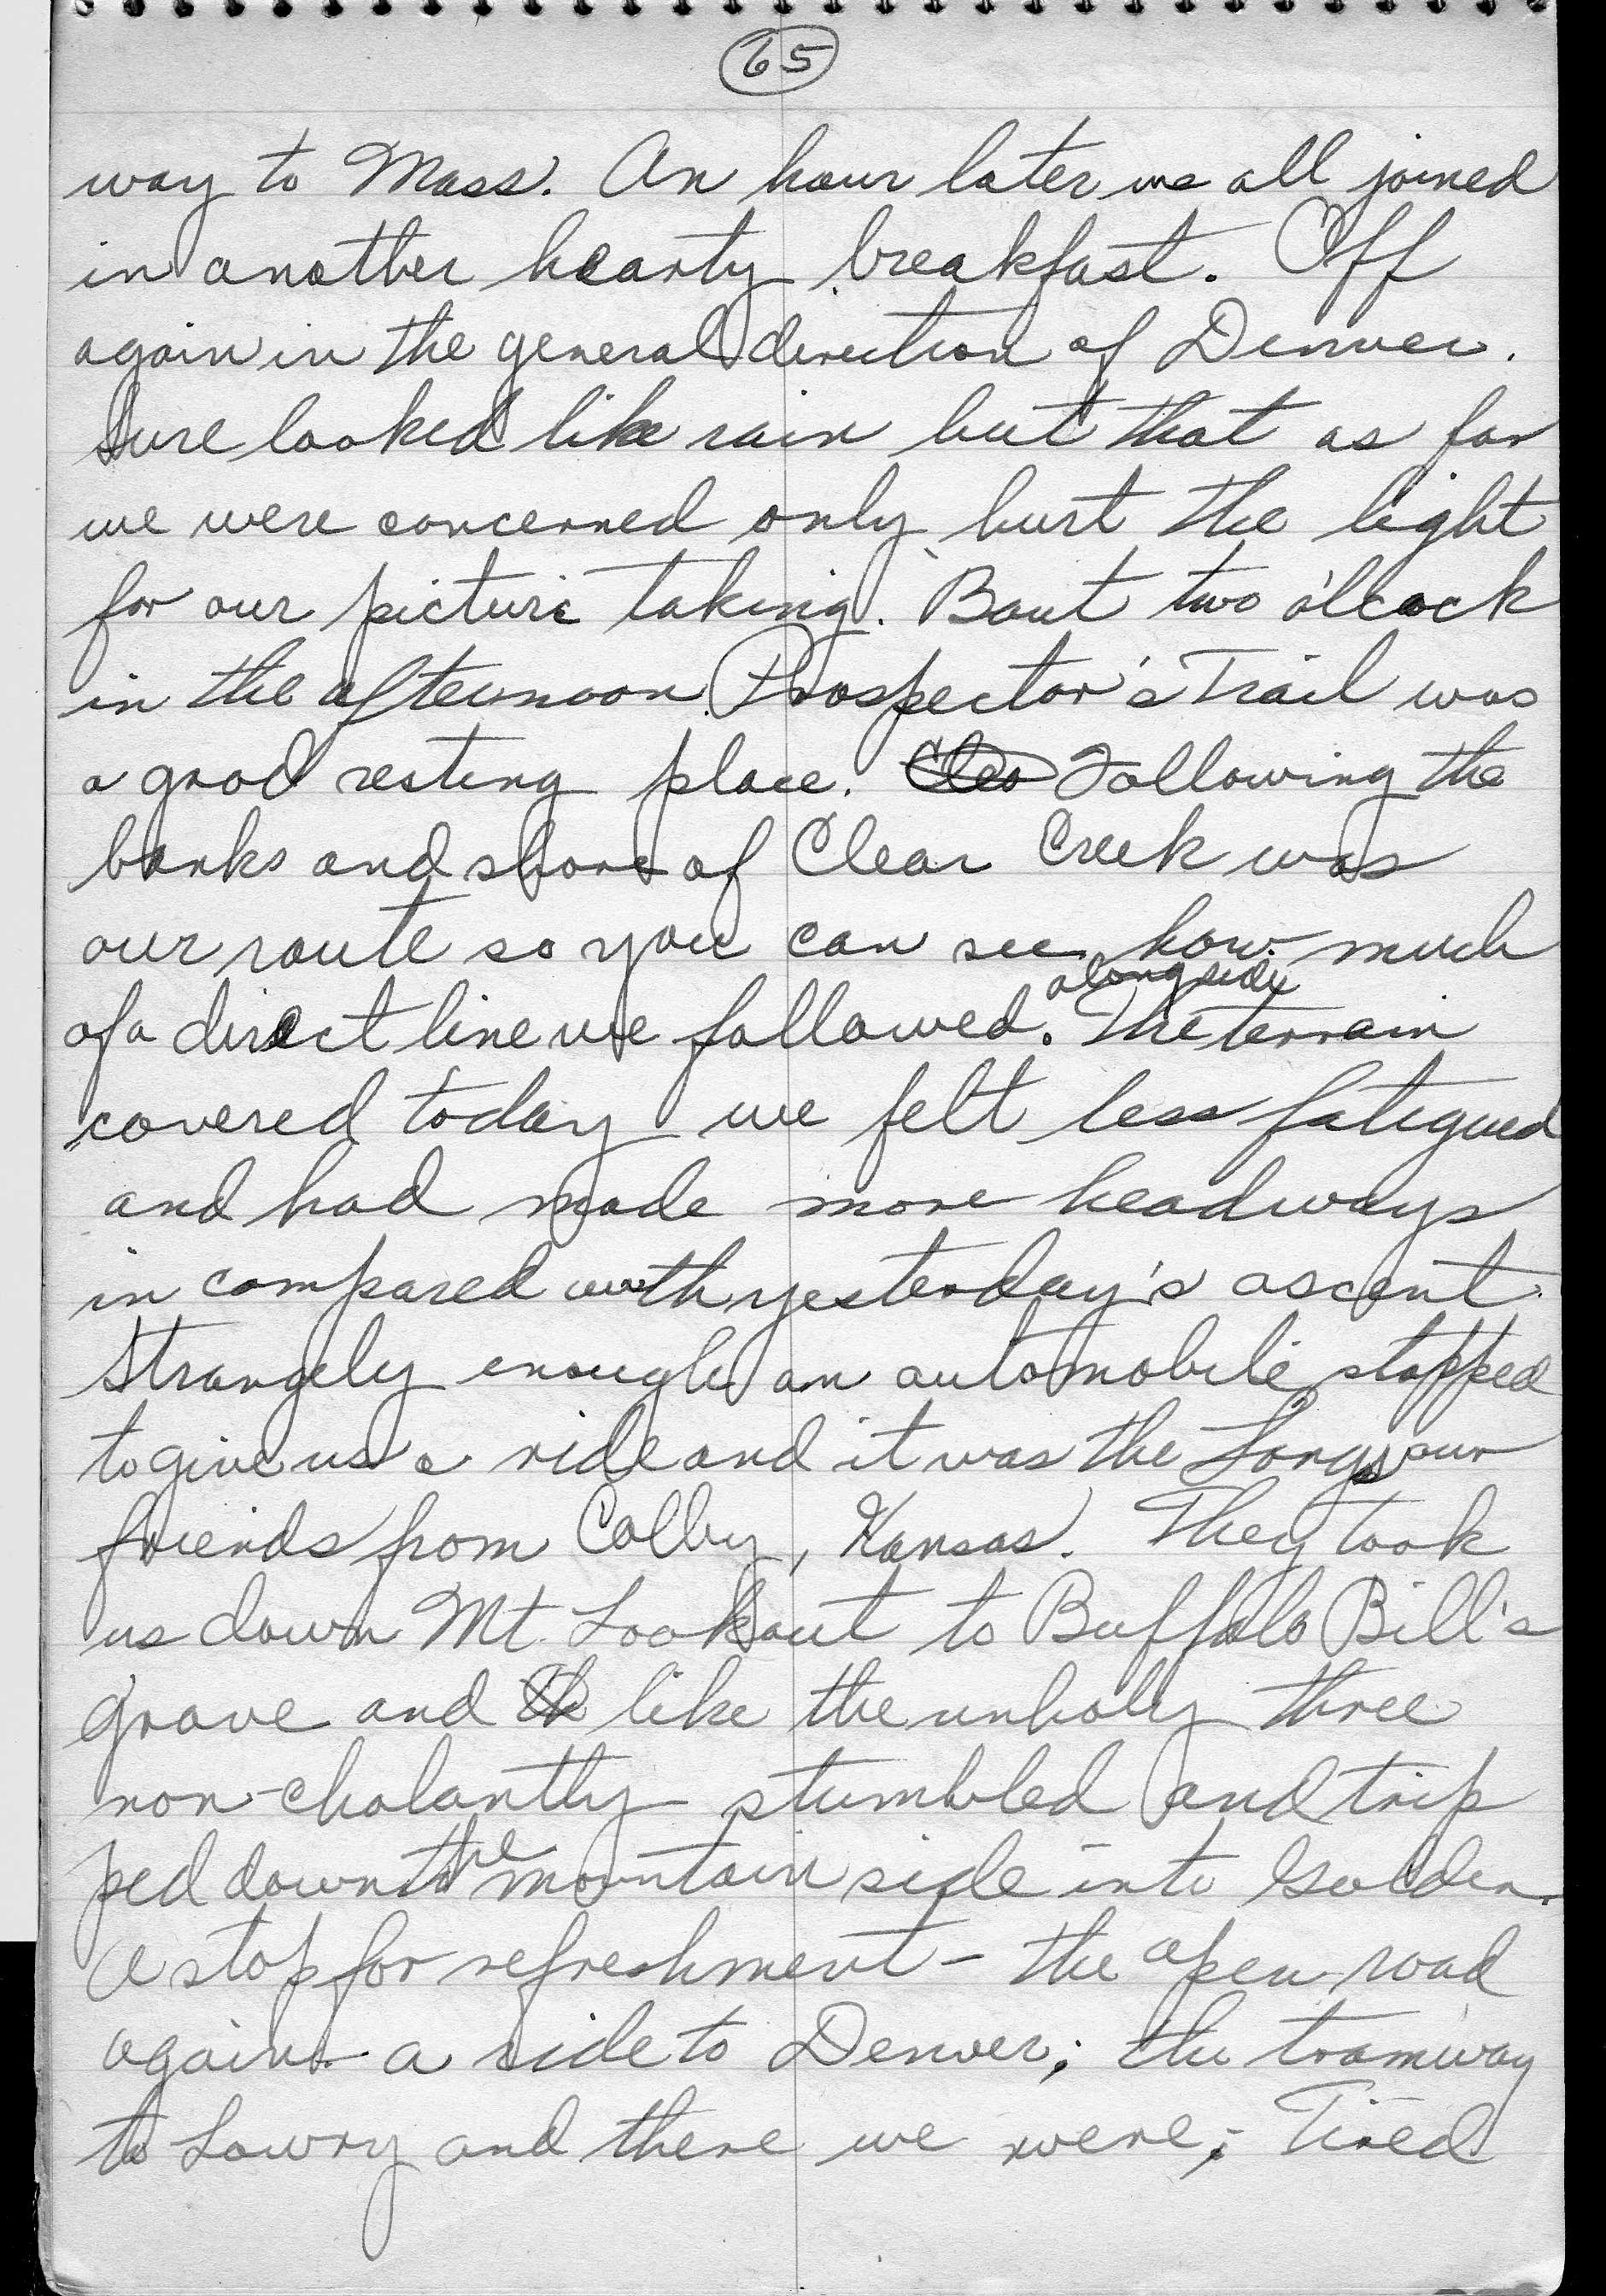 65
way to Mass. An hour later we all joined
in another hearty breakfast. Off
again in the general direction of Denver.
Sure looked like rain but that as far
we were concerned only hurt the light
for our picture taking. 'Bout two o'lcock
in the afternoon Prospector's Trail was
a good resting place. Cleo Following the
banks and shore of Clear Creek was
our route so you can see how much
alongside
of a direct line we followed. The terrain
covered today we felt less fatigued
and had made more headways
in compared with yesterday's ascent.
Strangely enough an automobile stopped
to give us a ride and it was the Longs our
friends from Colby, Kansas. They took
us down Mt. Lookout to Buffalo Bill's
grave and th like the unholy three
non-chalantly stumbled and trip
ped down the mountain side into Golden.
A stop for refreshment - the open road
again - a ride to Denver; the tramway
to Lowry and there we were; Tired